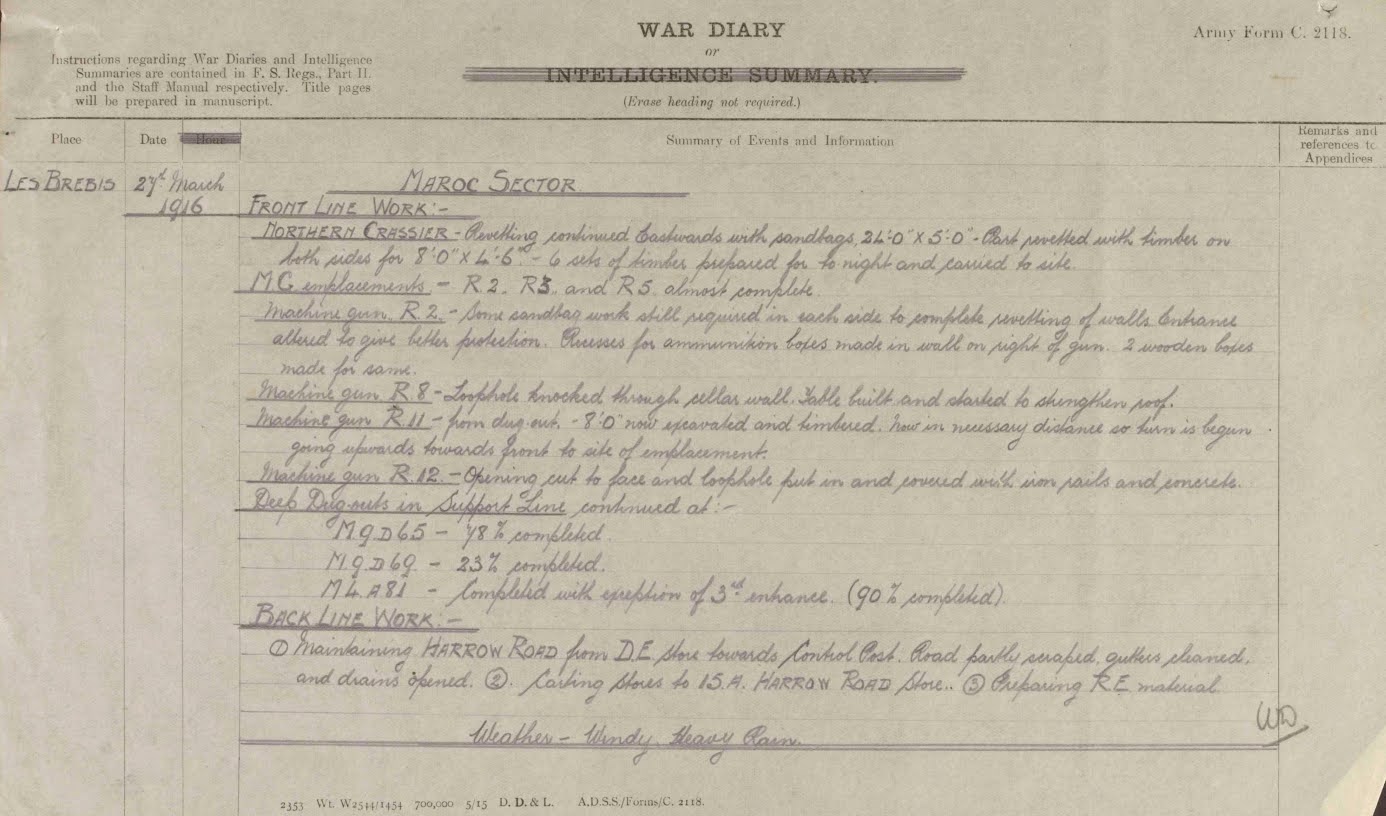 WAR DIARY
or
INTELLIGENCE SUMMARY.
(Erase heading not required.)
Army Form C. 2118.
Instructions regarding War Diaries and Intelligence
Summaries are contained in F. S. Regs., Part II.
and the Staff Manual respectively. Title pages
will be prepared in manuscript.
Place
Date
Hour
Summary of Events and Information
Remarks and
references to
Appendices
LES BREBIS
March
1916
MAROC SECTOR
FRONT LINE WORK:-
NORTHERN CRASSIER - Revetting continued Eastwards with sandbags, 24'·0" X 5'·0" - Part revetted with timber on
both sides for 8'·0" X 4'·6" - 6 sets of timber prepared for to night and carried to site.
M.G emplacements - R.2. R3. and R5. almost complete.
Machine gun. R.2. - Some sandbag work still required in each side to complete revetting of walls Entrance
altered to give better protection. Recesses for ammunition boxes made in wall on right of gun. 2 wooden boxes
made for same.
Machine gun R.8 - Loophole knocked through cellar wall. Table built and started to strengthen roof.
Machine gun R.11 - from dug-out. - 8'·0" now excavated and timbered. Now in necessary distance so turn is begun
going upwards towards front to site of emplacement.
Machine gun R.12. - Opening cut to face and loophole put in and covered with iron rails and concrete.
Deep Dug-outs in Support Line continued at:-
78% completed.
23% completed.
Completed with exception of 3rd entrance. (90% completed).
BACK LINE WORK:-
① Maintaining HARROW ROAD from D.E. Store towards Control Post. Road partly scraped, gutters cleaned,
and drains opened. ②. Carting stores to 15.A. HARROW ROAD Store.. ③ Preparing R.E material
WD
Weather - Windy. Heavy Rain.
2353 Wt. W2544/1454 700,000 5/15 D. D. & L. A.D.S.S./Forms/C. 2118.